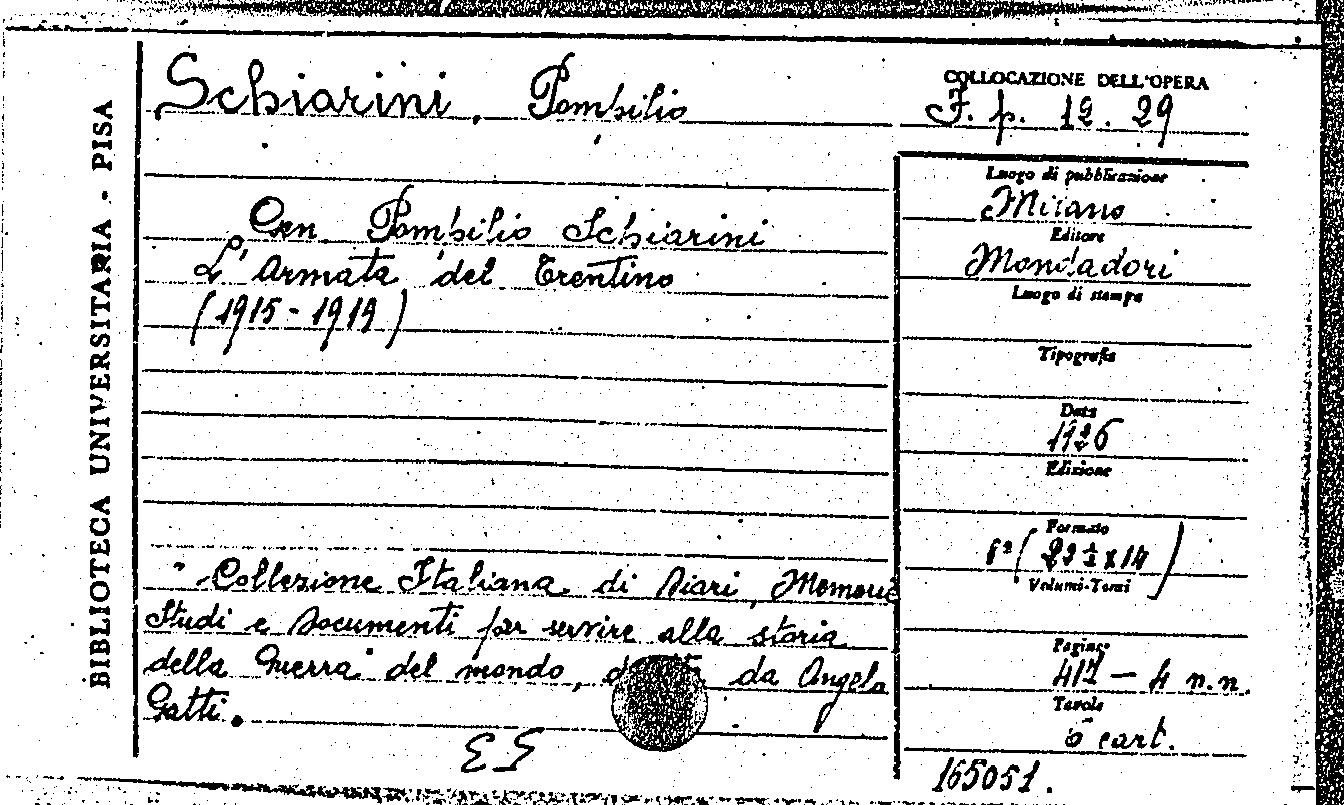 BIBLIOTECA UNIVERSITARIA - PISA
Schiarini, Pompilio
Gen. Pompilio Schiarini
L'Armata del Trentino
(1915-1919)
" Collezione Italiana di Diari, Memorie
Studi e Documenti per servire alla storia
della Guerra del mondo, da Angelo
Gatti.
COLLOCAZIONE DELL'OPERA
F. p. 12. 29
Luogo di pubblicazione
Milano
Editore
Mondadori
Luogo di stampa
Tipografia
Data
1926
Edizione
Formato
8° (22½ x 14)
Volumi-Tomi
Pagine
— 4 n.n.
Tavole
6 cart.
165051.